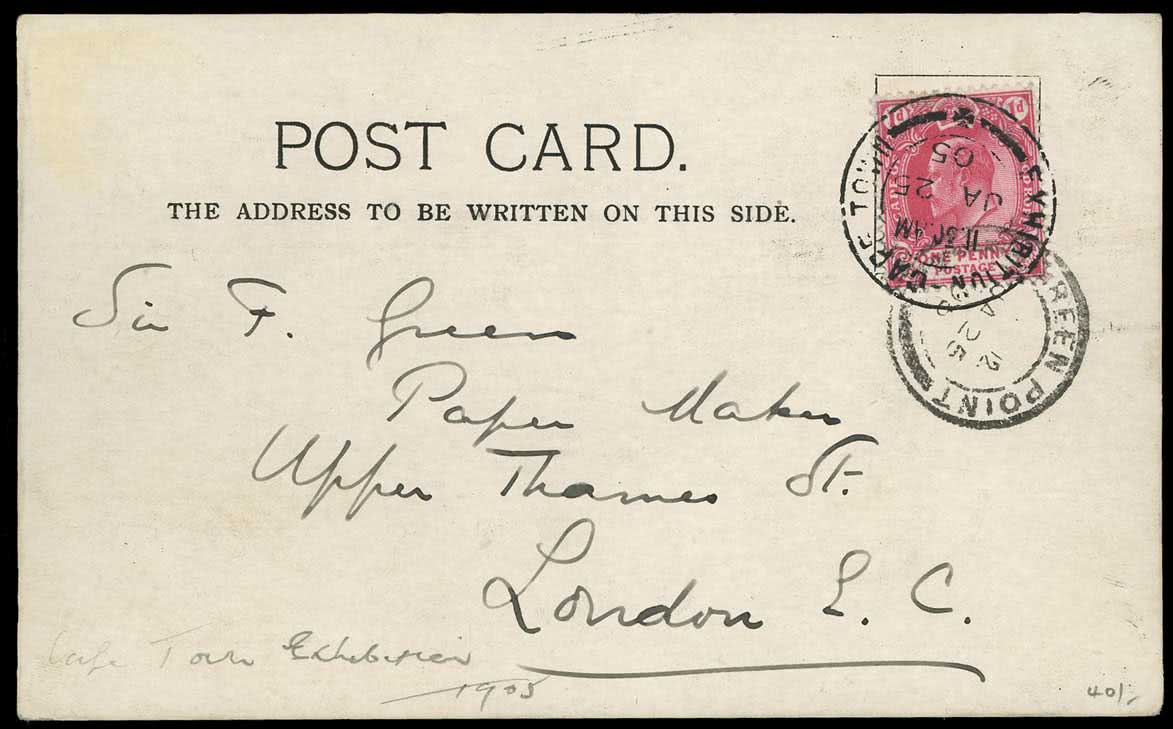 POST CARD.
THE ADDRESS TO BE WRITTEN ON THIS SIDE.
1d 1d
ONE PENNY
POSTAGE
EXHIBITION CAPE TOWN
11.30 AM
JA 25
05
GREEN POINT
JA 25
Sir F. Green
Paper Maker
Upper Thames St.
London E. C.
Cape Town Exhibition
1905
40/-